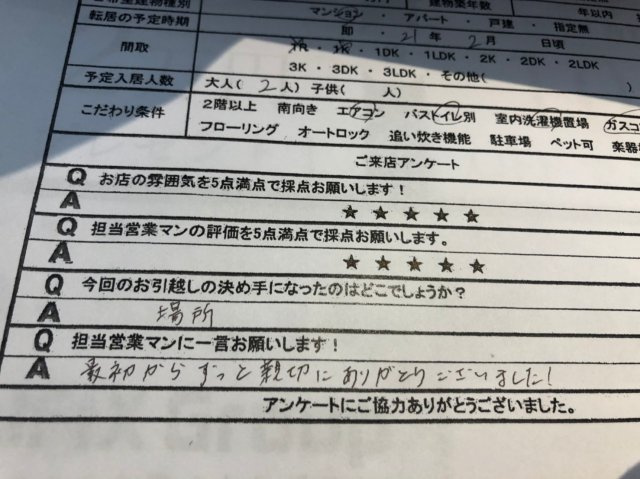 希望建物種別 マンション ・ アパート ・ 戸建 ・ 指定無 建物築年数 年以内
転居の予定時期 即 ・ 21 年 2 月 日頃
間取 1R ・ 1K ・ 1DK ・ 1LDK ・ 2K ・ 2DK ・ 2LDK
3K ・ 3DK ・ 3LDK ・ その他( )
予定入居人数 大人( 2 人) 子供( 人)
こだわり条件 2階以上 南向き エアコン バストイレ別 室内洗濯機置場 ガスコ
フローリング オートロック 追い炊き機能 駐車場 ペット可 楽器
ご来店アンケート
Q お店の雰囲気を5点満点で採点お願いします！
A ★ ★ ★ ★ ★
Q 担当営業マンの評価を5点満点で採点お願いします。
A ★ ★ ★ ★ ★
Q 今回のお引越しの決め手になったのはどこでしょうか？
A 場所
Q 担当営業マンに一言お願いします！
A 最初からずっと親切にありがとうございました！
アンケートにご協力ありがとうございました。